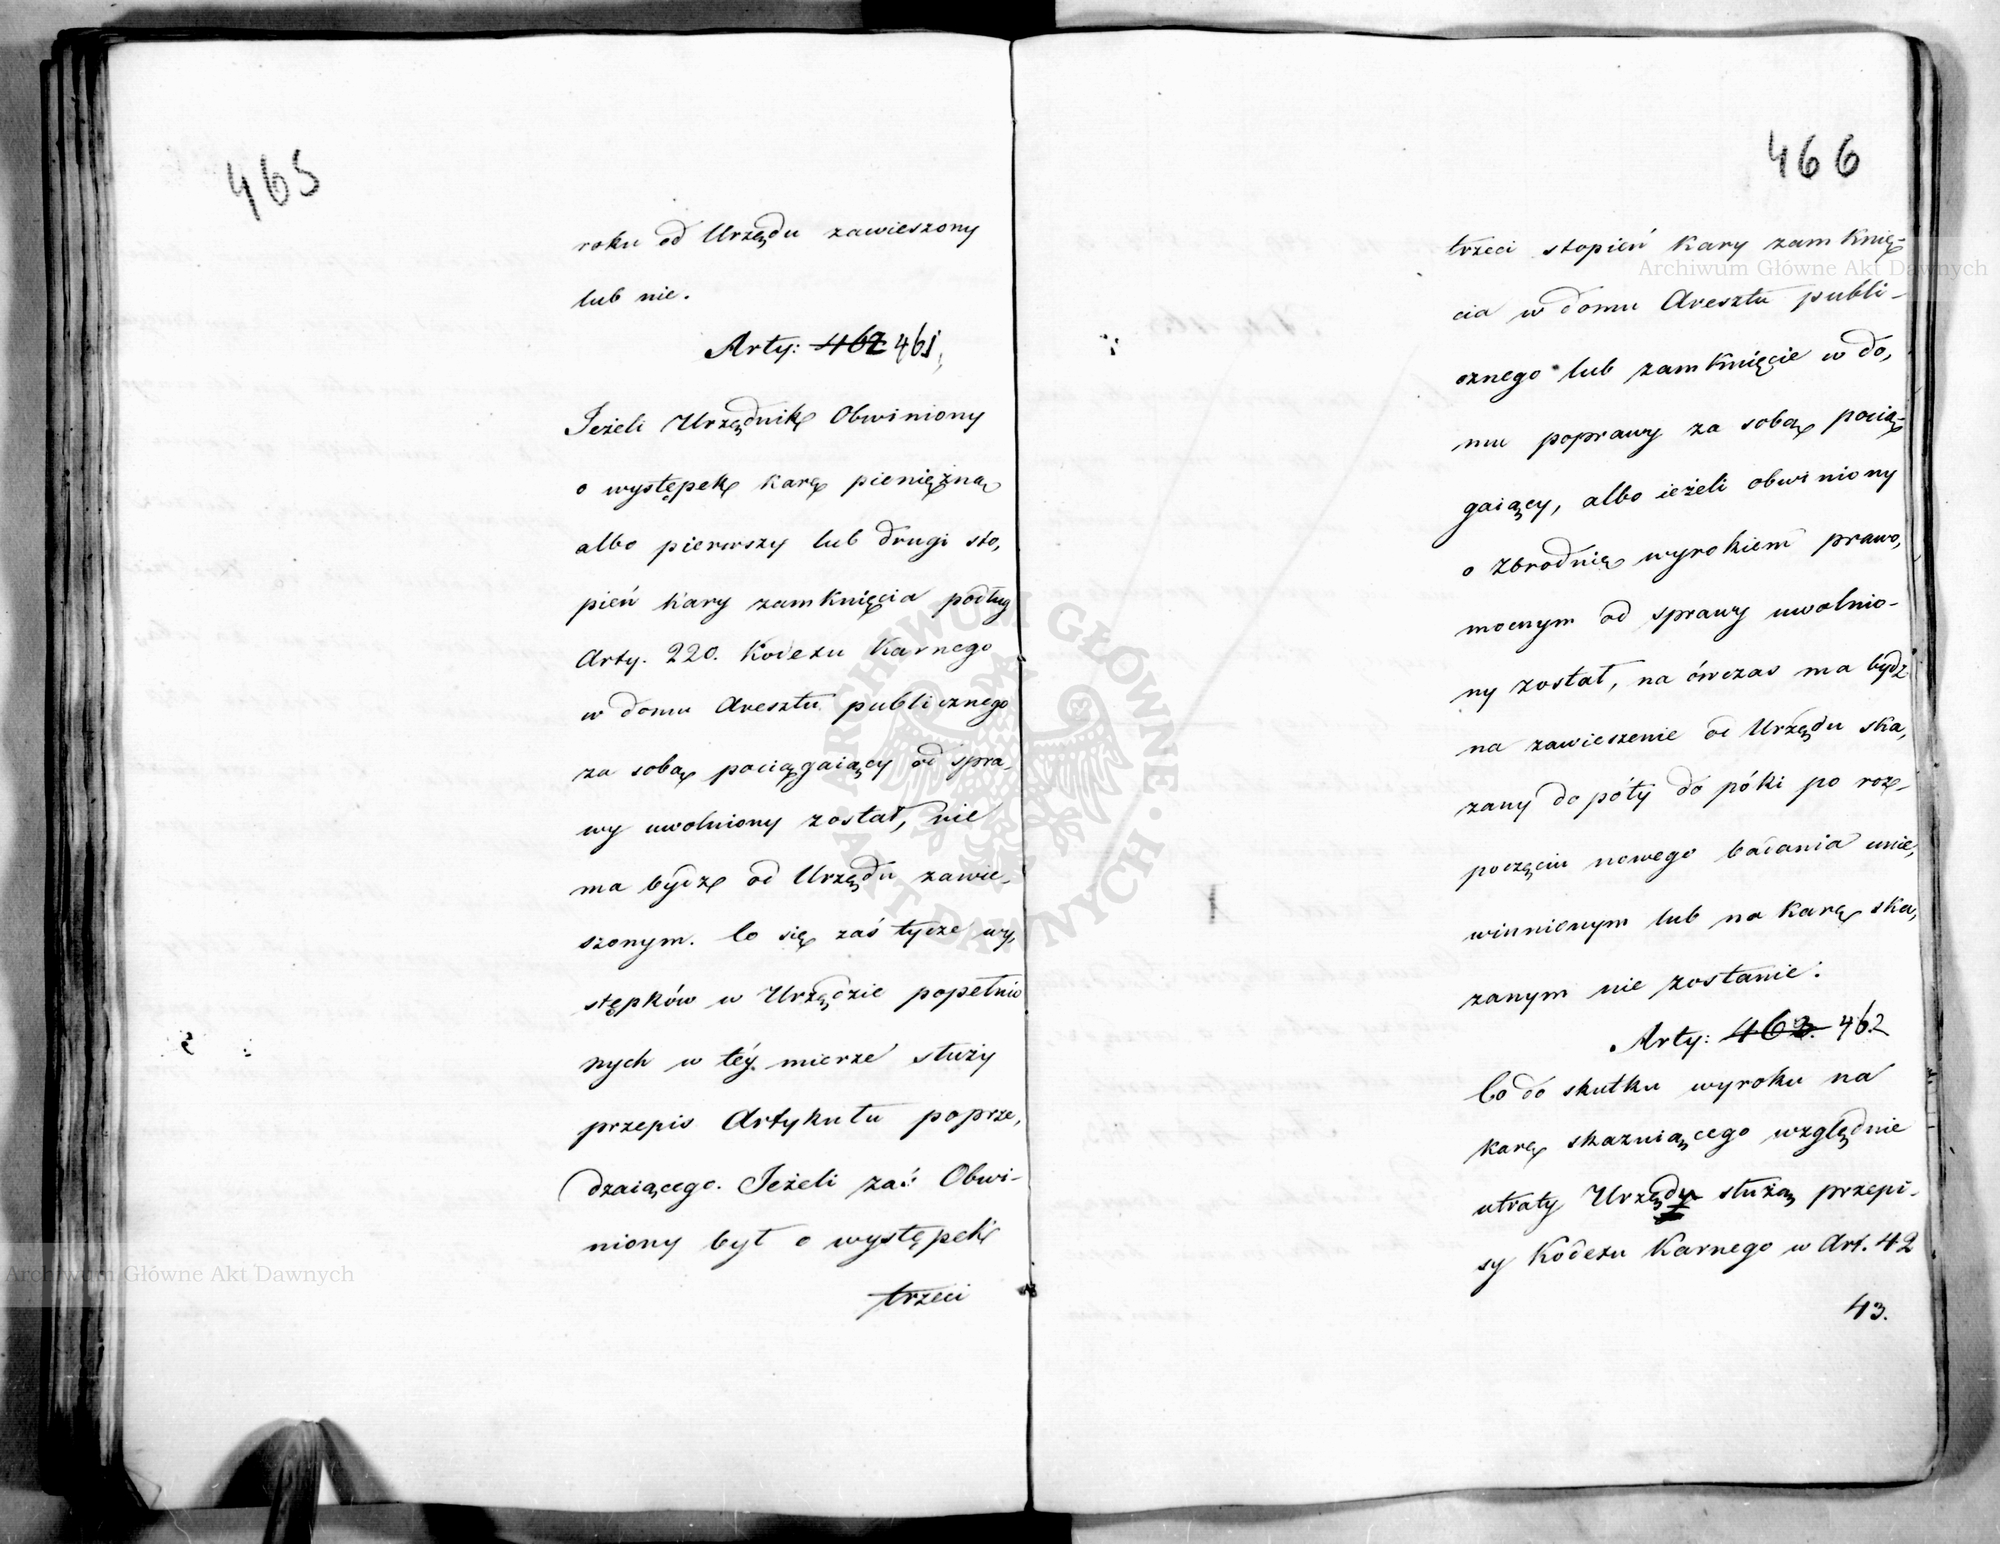 465
roku od Urzędu zawieszony
lub nie.
Arty: 462 461,
Jeżeli Urzędnik Obwiniony
o występek karę pieniężną
albo pierwszy lub drugi sto,
pień kary zamknięcia podług
Arty. 220. Kodexu Karnego
w domu Aresztu publicznego
za sobą pociągaiący od spra,
wy uwolniony został, nie
ma bydź od Urzędu zawie,
szonym. Co się zaś tycze wy,
stępków w Urzędzie popełnio
nych w téy mierze służy
przepis Artykułu poprze,
dzaiącego. Jeżeli zaś Obwi-
niony był o występek
trzeci
466
trzeci stopień kary zamknię-
cia w domu Aresztu publi-
cznego lub zamknięcie w do,
mu poprawy za sobą pocią-
gaiący, albo ieżeli obwiniony
o zbrodnię wyrokiem prawo,
mocnym od sprawy uwolnio-
ny został, na ówczas ma bydź
na zawieszenie od Urzędu ska,
zany do póty do póki po roz-
poczęciu nowego badania unie,
winnionym lub na karę ska,
zanym nie zostanie.
Arty: 463. 462
Co do skutku wyroku na
karę skazuiącego względnie
utraty Urzędu służą przepi-
sy Kodexu Karnego w Art. 42
43.
Archiwum Główne Akt Dawnych
Archiwum Główne Akt Dawnych
ARCHIWUM GŁÓWNE AKT DAWNYCH